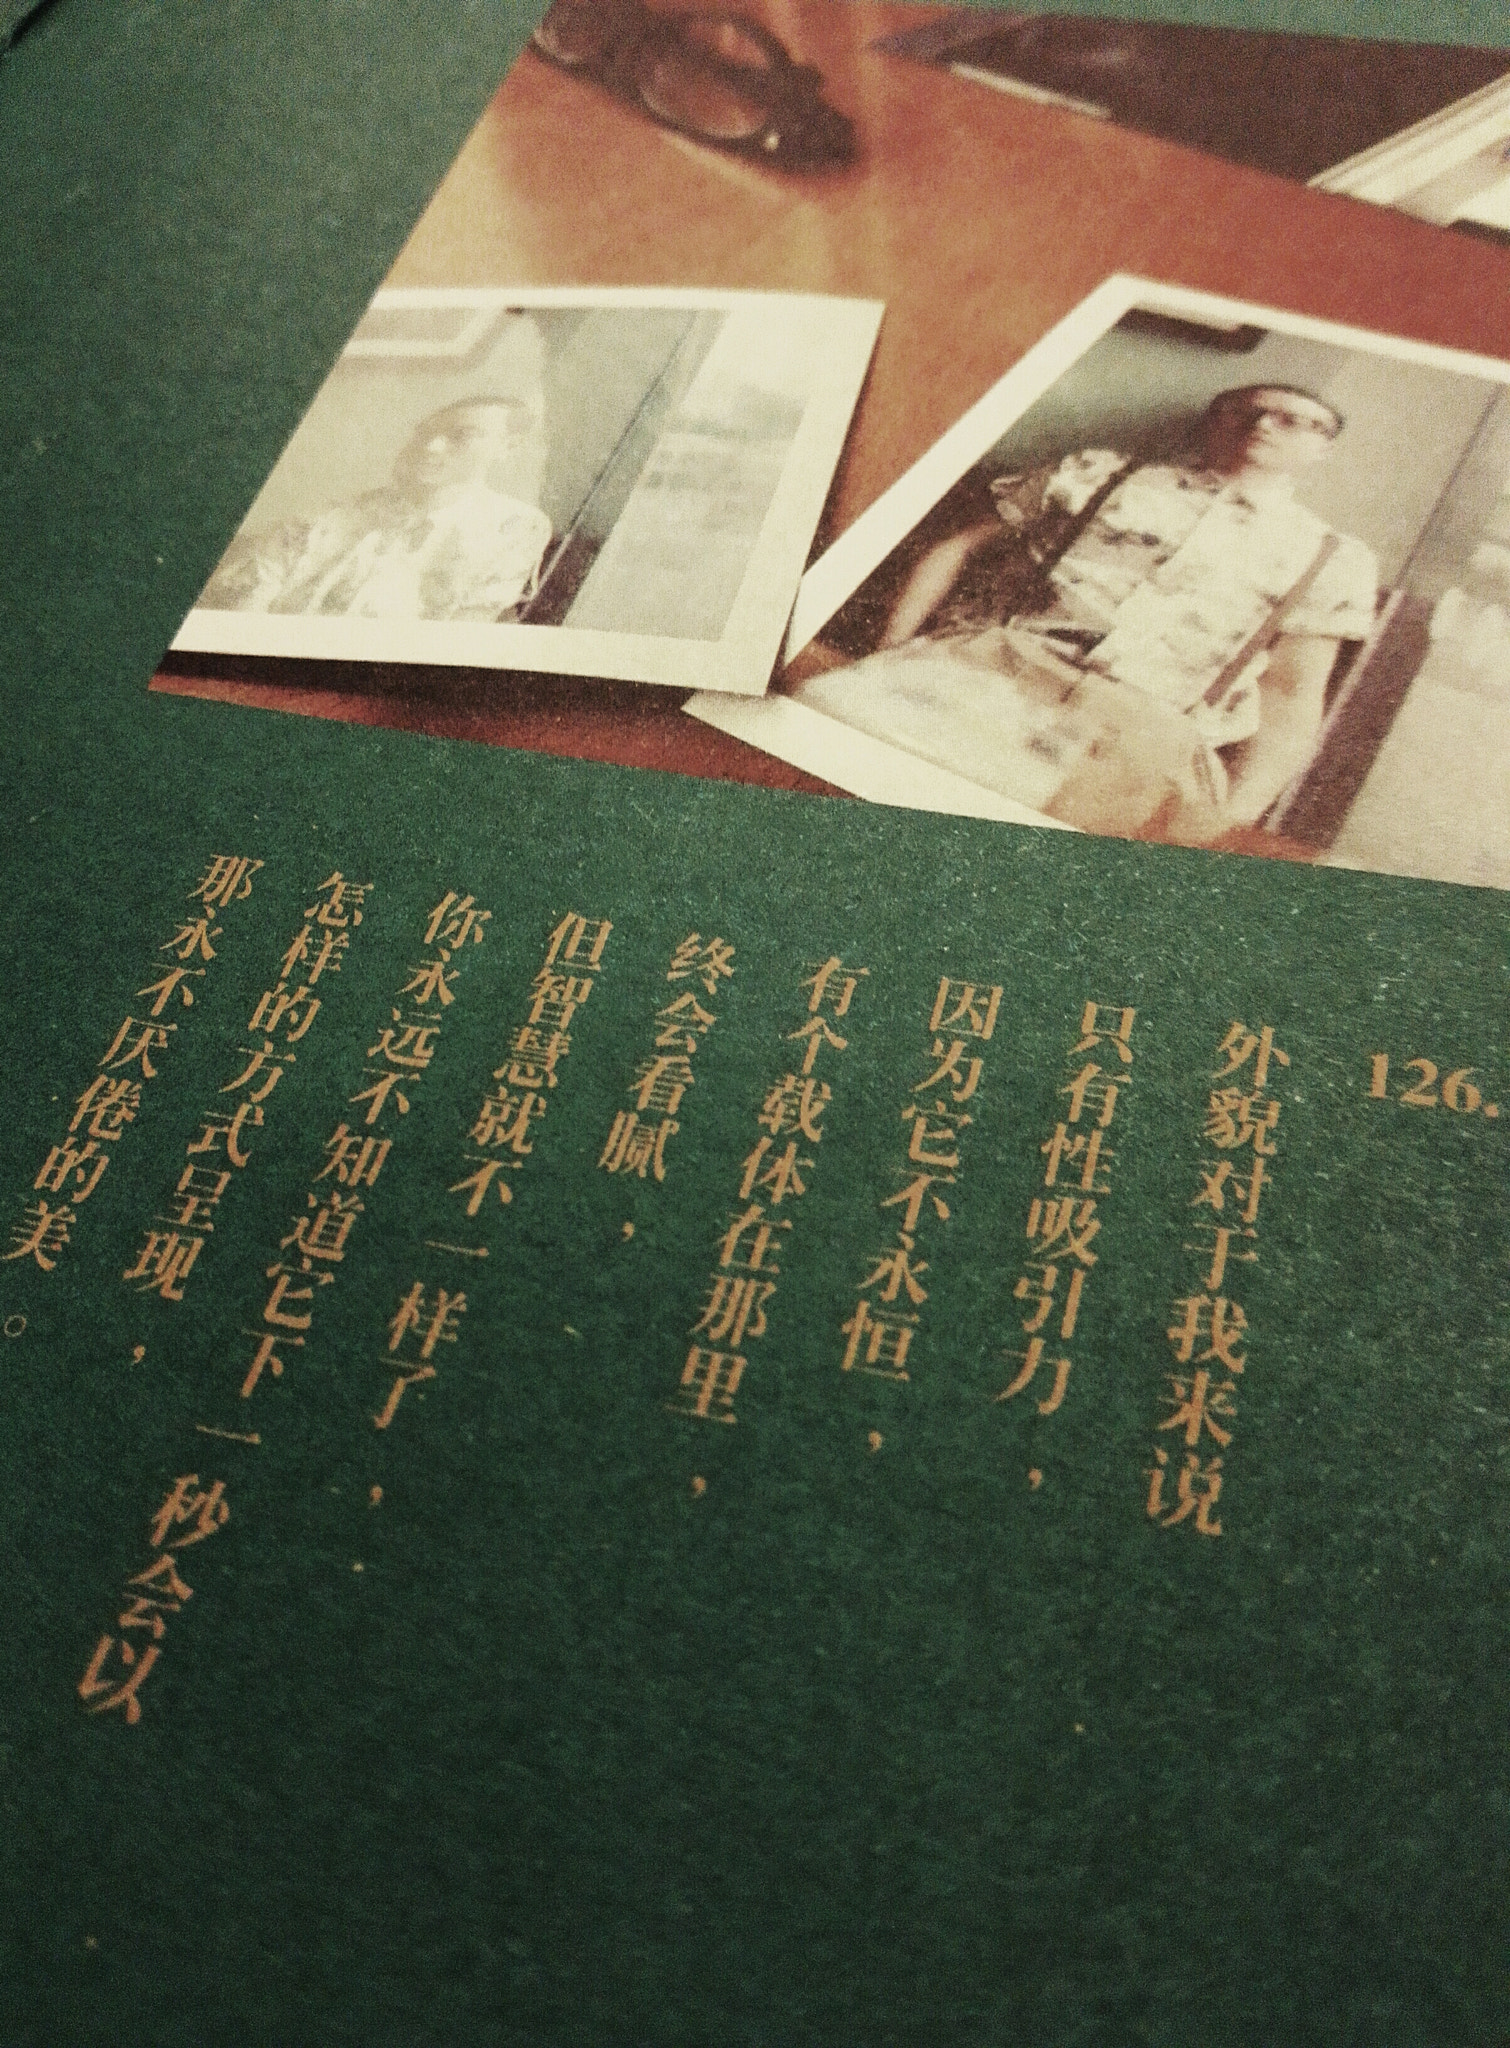 126.
外貌对于我来说
只有性吸引力，
因为它不永恒，
有个载体在那里，
终会看腻，
但智慧就不一样了，
你永远不知道它下一秒会以
怎样的方式呈现，
那永不厌倦的美。